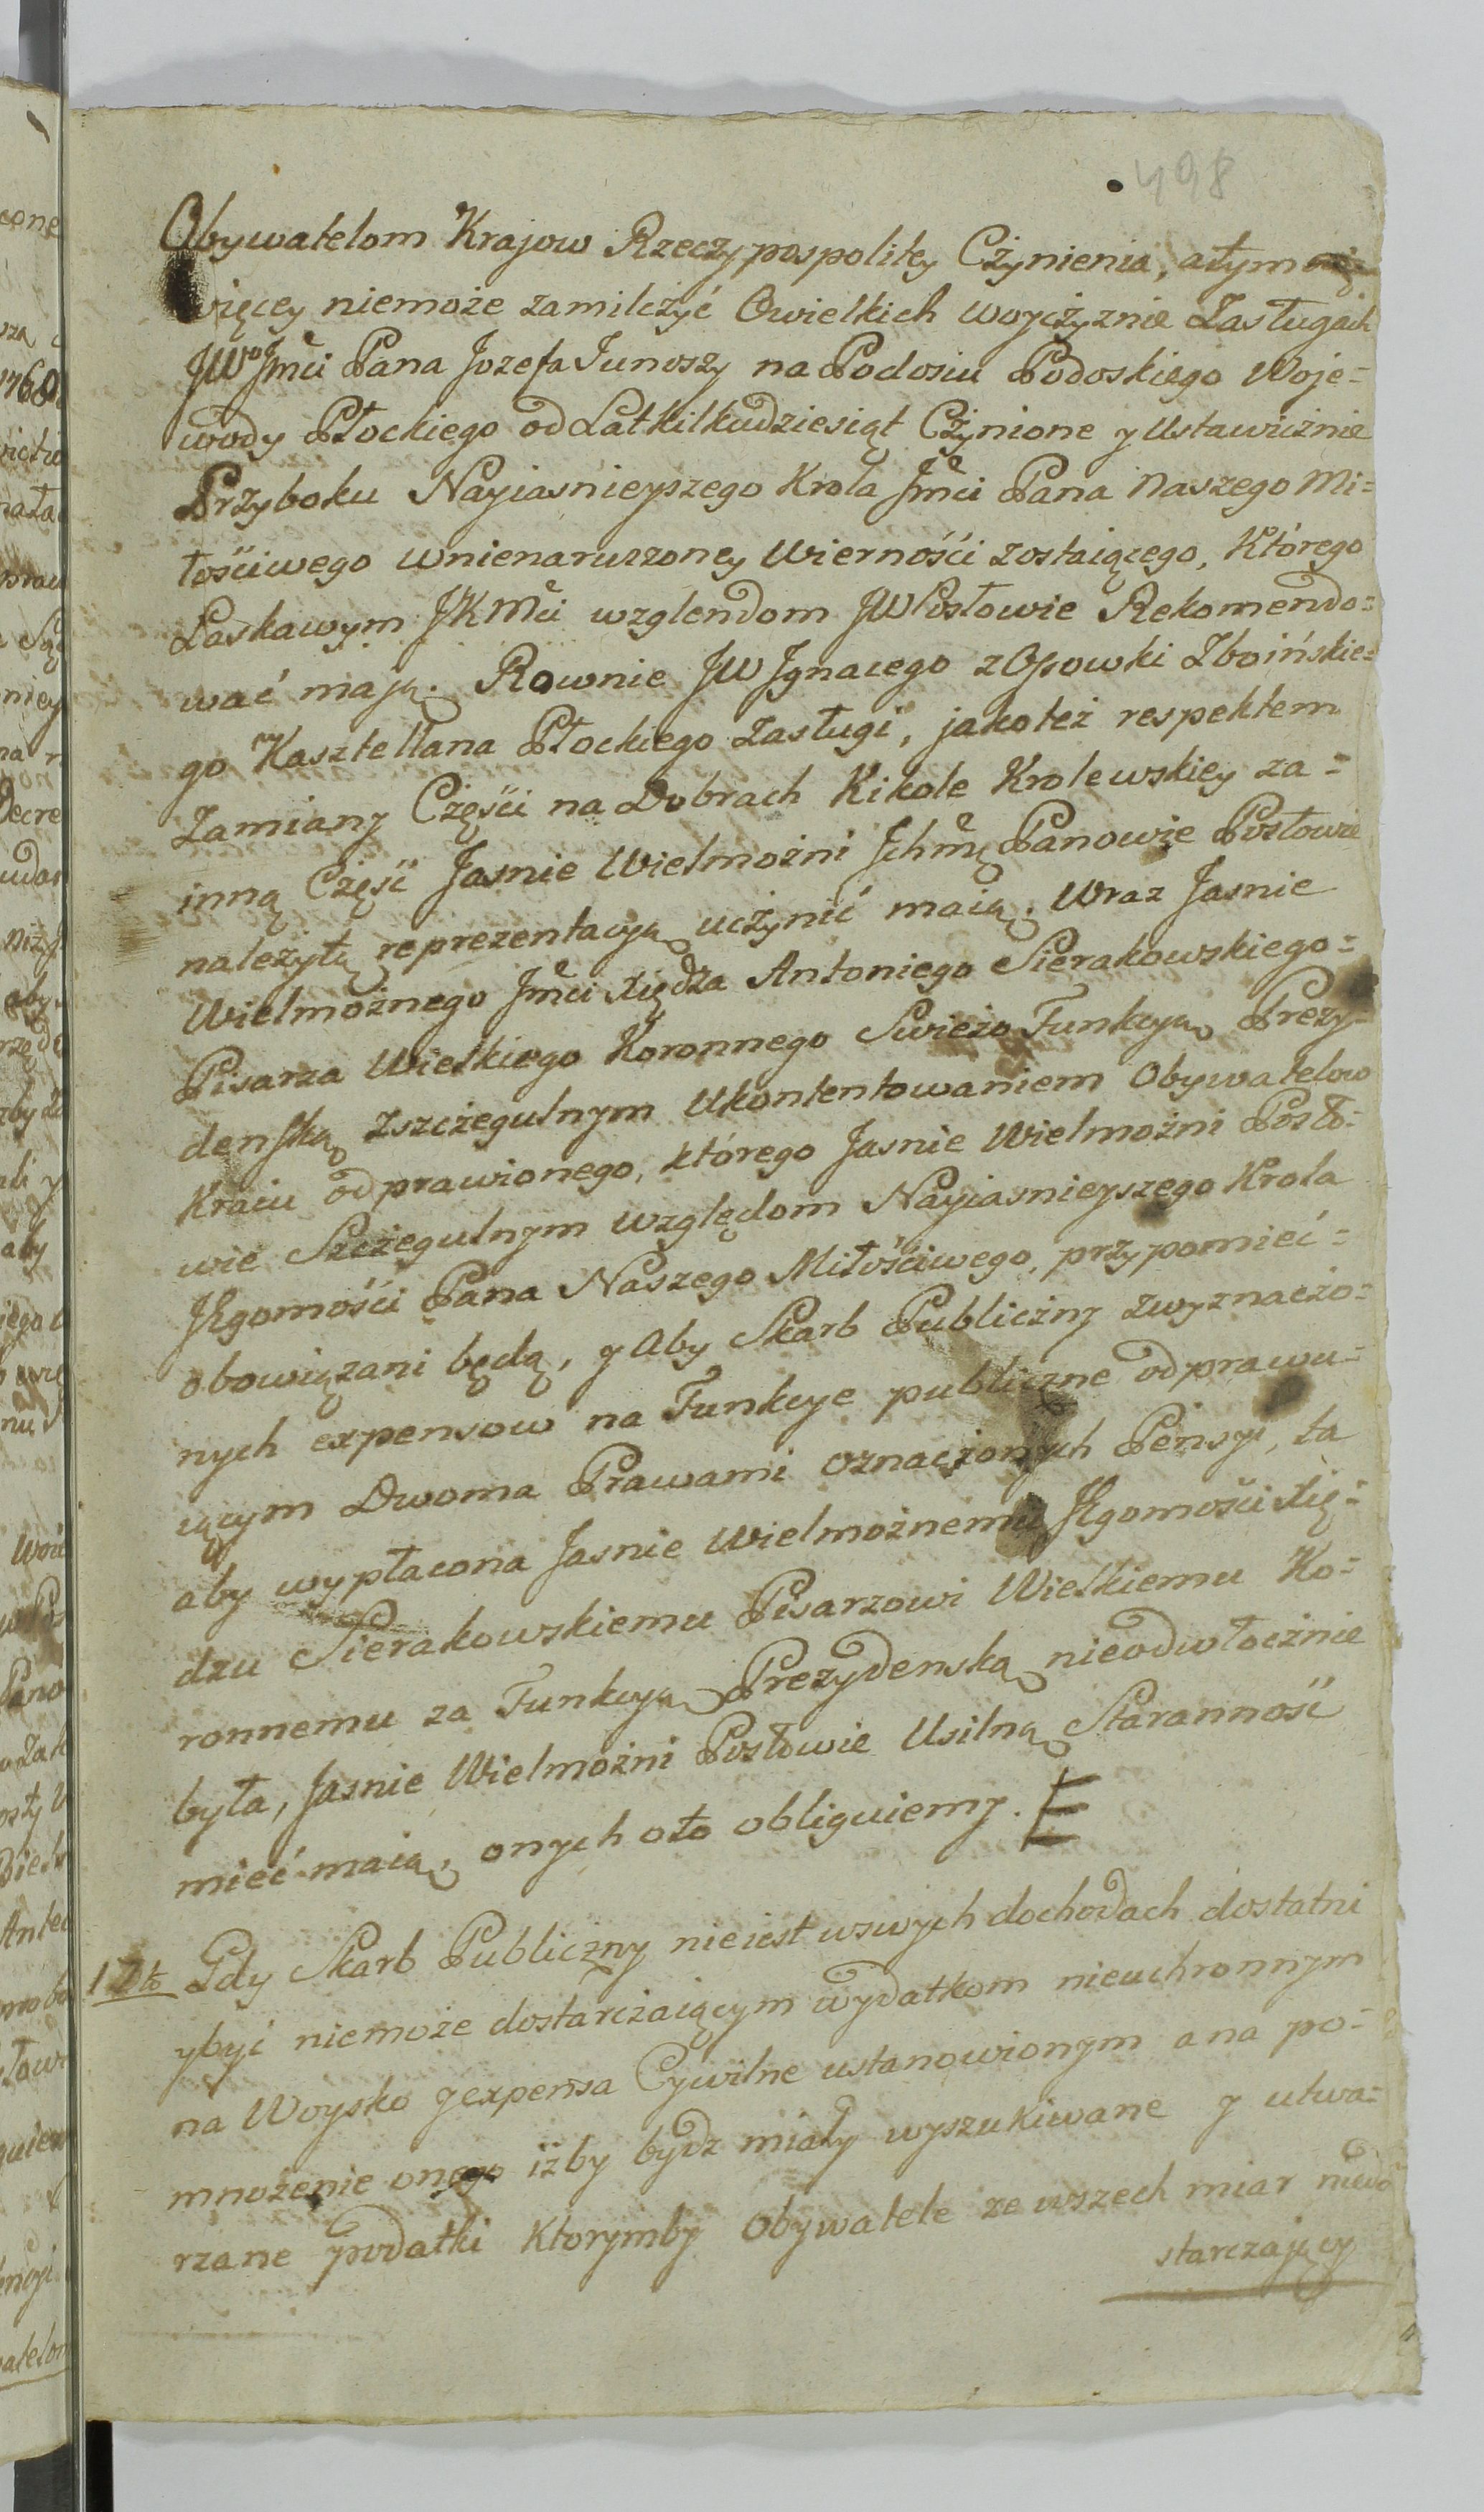 498
Obywatelom Krajow Rzeczypospolitey Czynienia, atym
więcey niemoże zamilczyć Owielkich woyczyznie Zasługach
JWo Jmci Pana Jozefa Junoszy na Podosiu Podoskiego Woje=
wody Płockiego od Lat kilkudziesiąt Czynione y Ustawicznie
Przyboku Nayiasnieyszego Krola Jmci Pana Naszego Mi=
łościwego wnienaruszoney Wierności zostaiącego, Którego
Laskawym JKMci wzglendom JW Posłowie Rekomendo=
wać mają. Rownie JW Jgnacego z Osowki Zboińskie=
go Kasztellana Płockiego Zasługi, jako też respektem
Zamiany Części na Dobrach Kikole Krolewskiey za=
inną Część Jasnie Wielmożni Jchmę Panowie Posłowie
należytą reprezentacyą uczynić maią. Wraz Jasnie
Wielmożnego Jmci Xiędza Antoniego Sierakowskiego=
Pisarza Wielkiego Koronnego Swiezo Funkcyą Prezy=
denską zszczegulnym Ukontentowaniem Obywatelow
Kraiu odprawionego, którego Jasnie Wielmożni Posło=
wie Szczegulnym względom Nayiasnieyszego Krola
JEgomości Pana Naszego Miłościwego, przypomieć=
obowiązani będą, y Aby Skarb Publiczny zwyznaczo=
nych expensow na Funkcye publiczne odprawu=
iącym Dwoma Prawami oznaczonych Pensyi, ta
aby wypłacona Jasnie Wielmożnemu JEgomości Xię=
dzu Sierakowskiemu Pisarzowi Wielkiemu Ko=
ronnemu za Funkcyą Prezydenską nieodwłocznie
była, Jasnie Wielmożni Posłowie Usilną Staranność
mieć maią, onych oto obliguiemy.
12to Gdy Skarb Publiczny nieiest wswych dochodach dostatni
ybyć niemoże dostarczaiącym wydatkom nieuchronnym
na Woysko y expensa Cywilne ustanowionym a na po=
mnożenie onego iżby bydz miały wyszukiwane y utwa=
rzane podatki Ktorymby Obywatele ze wszech miar niedo
starczający